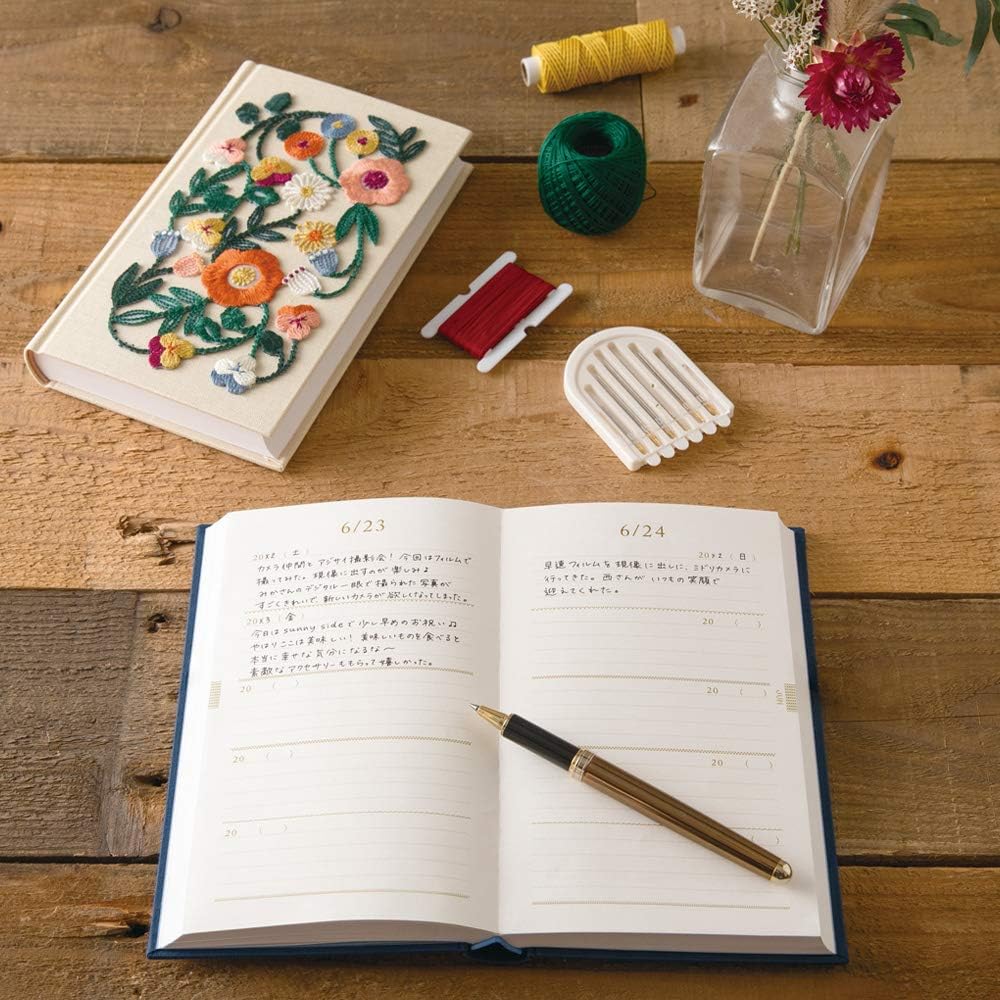 6/23
20X2 (土)
カメラ仲間とアジサイ撮影会！今回はフィルムで
撮ってみた。現像に出すのが楽しみ♪
みかさんのデジタル一眼で撮られた写真が
すごくきれいで、新しいカメラが欲しくなってしまった。
20X3 (金)
今日はsunny sideで少し早めのお祝い♫
やはりここは美味しい！美味しいものを食べると
本当に幸せな気分になるな〜
素敵なアクセサリーももらって嬉しかった。
20 ( )
20 ( )
20 ( )
6/24
20X2 (日)
早速フィルムを現像に出しに、ミドリカメラに
行ってきた。西さんがいつもの笑顔で
迎えてくれた。
20 ( )
20 ( )
JUN
20 ( )
( )